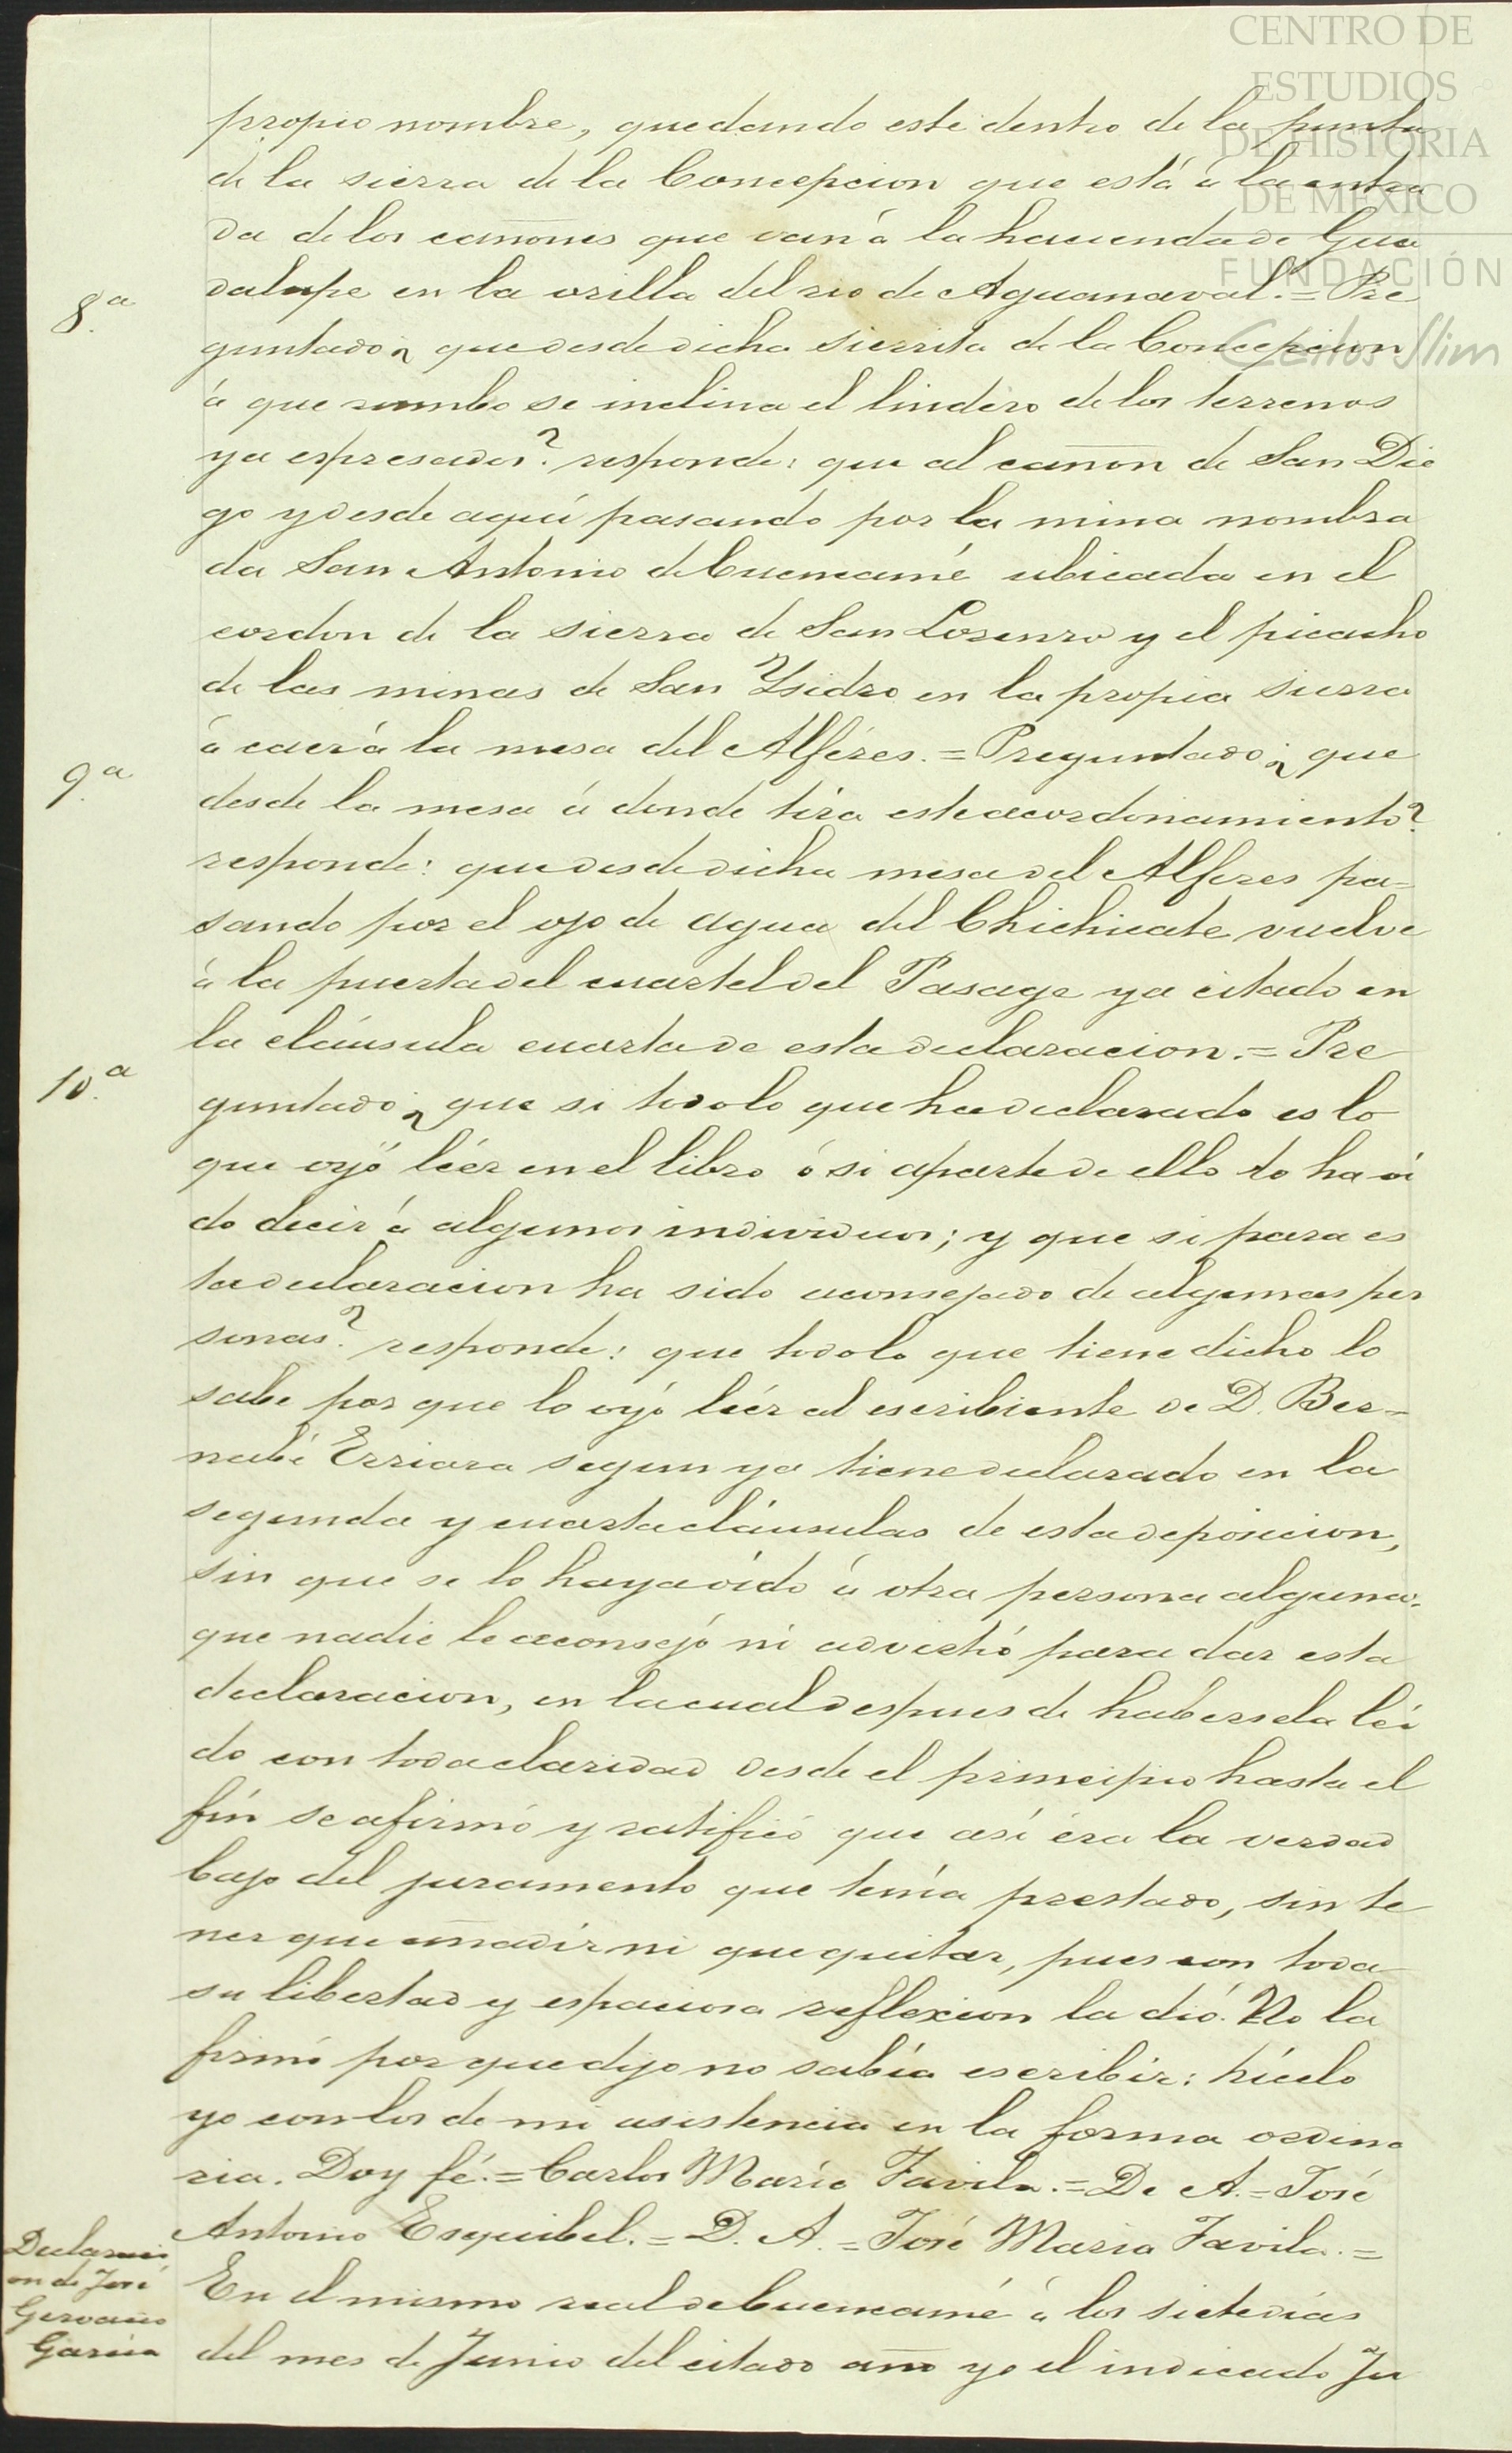 CENTRO DE
ESTUDIOS
DE HISTORIA
DE MÉXICO
FUNDACIÓN
Carlos Slim
propio nombre, quedando este dentro de la punta
de la sierra de la Concepcion que está á la entra
da de los cañones que van á la hacienda de Gua
8.ª
dalupe en la orilla del rio de Aguanaval.= Pre
guntado ¿ que desde dicha sierrita de la Concepcion
á que rumbo se inclina el lindero de los terrenos
ya espresados? responde: que al cañon de San Die
go y desde aquí pasando por la mina nombra
da San Antonio de Cuencamé ubicada en el
cordon de la sierra de San Lorenzo y el picacho
de las minas de San Ysidro en la propia sierra
á caer á la mesa del Alféres.= Preguntado: ¿ que
9.ª
desde la mesa á donde tira este acordonamiento?
responde: que desde dicha mesa del Alferes pa=
sando por el ojo de agua del Chichicate vuelve
á la puerta del cuartel del Pasage ya citado en
la cláusula cuarta de esta declaracion.= Pre
10.ª
guntado: ¿ que si todo lo que ha declarado es lo
que oyó leér en el libro ó si aparte de ello lo ha oi
do decir á algunos individuos; y que si para es
ta declaracion ha sido aconsejado de algunas per
sonas? responde: que todo lo que tiene dicho lo
sabe por que lo oyó leér al escribiente de D. Ber=
nabé Erriara segun ya tiene declarado en la
segunda y cuarta cláusulas de esta deposicion,
sin que se lo haya oido á otra persona alguna:
que nadie le aconsejó ni advirtió para dar esta
declaracion, en la cual despues de habersela lei
do con toda claridad desde el principio hasta el
fin se afirmó y ratificó que así éra la verdad
bajo del juramento que tenía prestado, sin te
ner que añadir ni que quitar, pues con toda
su libertad y espaciosa reflexion la dió. No la
firmó por que dijo no sabía escribir: hícelo
yo con los de mi asistencia en la forma ordina
ria. Doy fé.= Carlos María Favila.= De A.= José
Antonio Esquibel.= D. A.= José Maria Favila.=
Declaraci
on de José
Gervacio
Garcia
En el mismo real de Cuencamé á los siete dias
del mes de Junio del citado año yo el indicado Ju